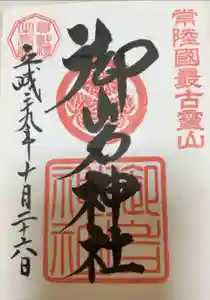 常陸國最古霊山
御岩神社
平成二九年十月二十六日